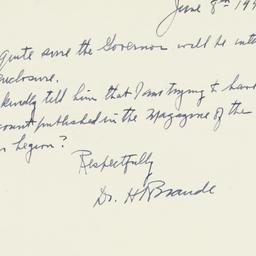 June 8th 194
quite sure the Governor will be inte
enclosure.
kindly tell him that I am trying to have
count published in the Magazine of the
n Legion?
Respectfully
Dr. H Brande